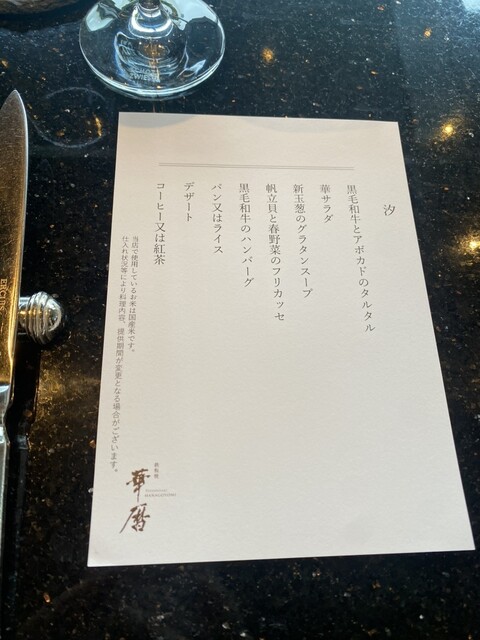 汐
黒毛和牛とアボカドのタルタル
華サラダ
新玉葱のグラタンスープ
帆立貝と春野菜のフリカッセ
黒毛和牛のハンバーグ
パン又はライス
デザート
コーヒー又は紅茶
当店で使用しているお米は国産米です。
仕入れ状況等により料理内容、提供期間が変更となる場合がございます。
鉄板焼
華暦